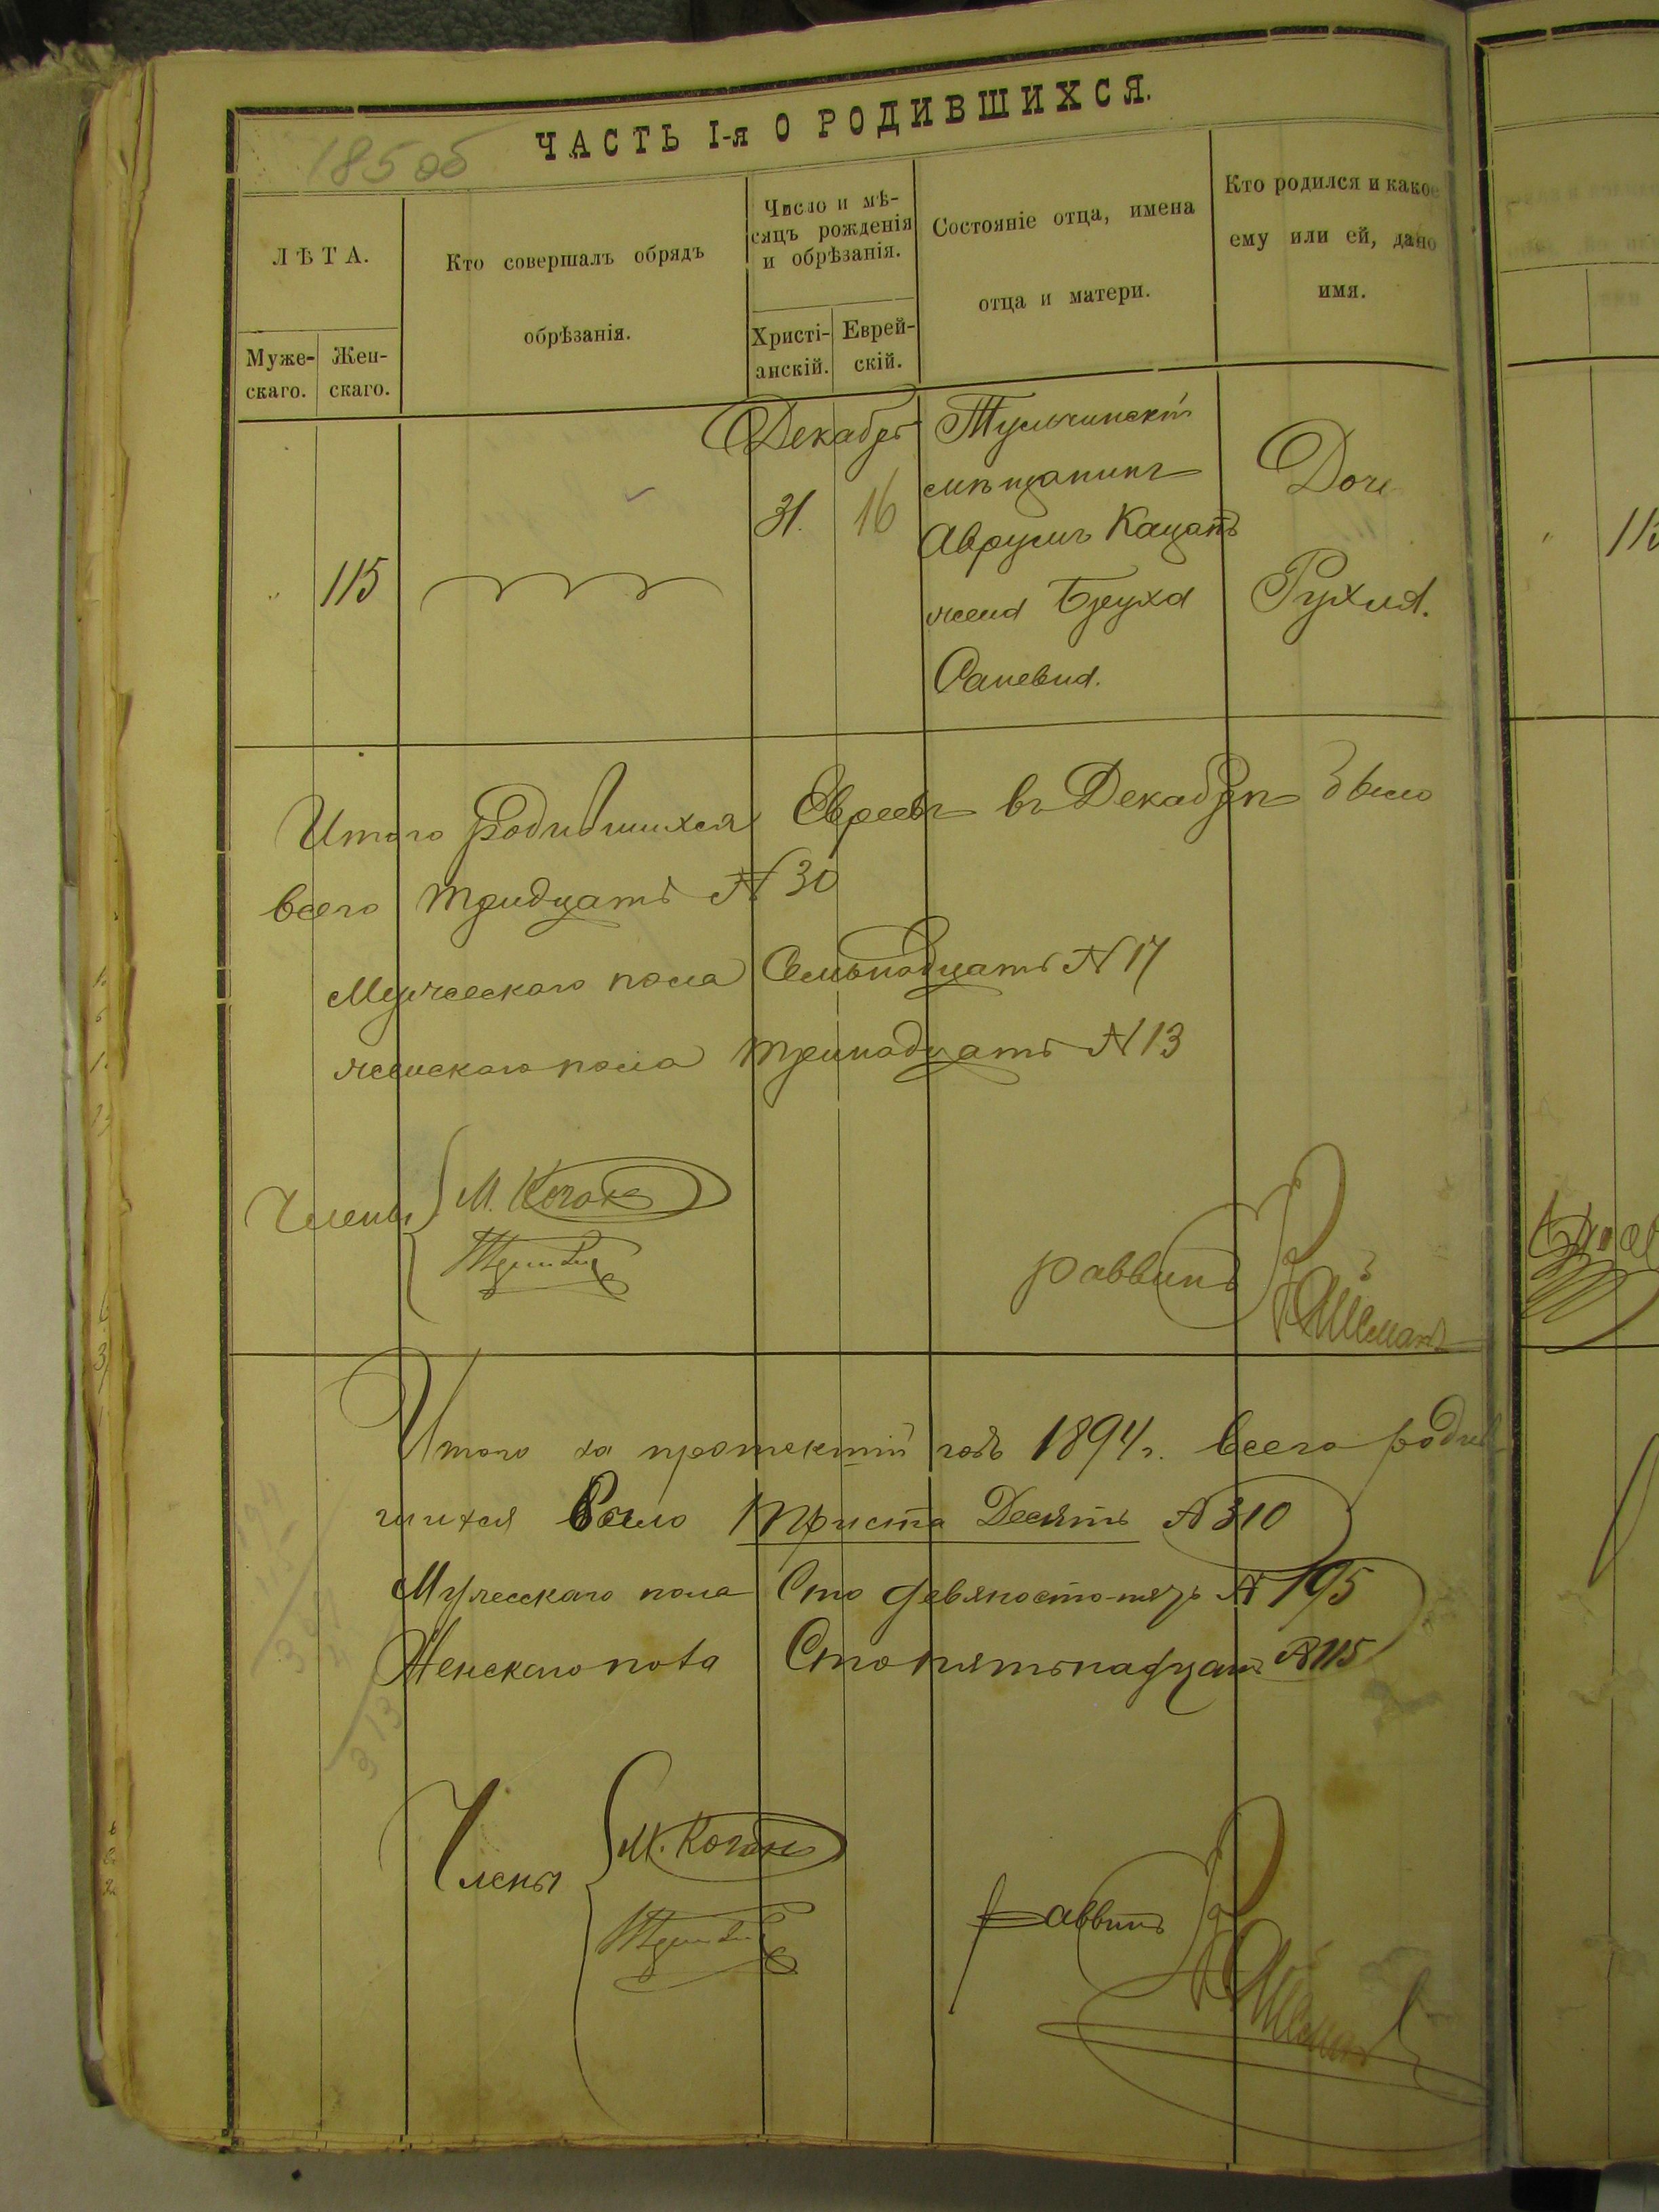 185 об
ЧАСТЬ I-я О РОДИВШИХСЯ.
ЛѢТА.
Муже-
скаго.
Жен-
скаго.
Кто совершалъ обрядъ
обрѣзанія.
Число и мѣ-
сяцъ рожденія
и обрѣзанія.
Христі-
анскій.
Еврей-
скій.
Состояніе отца, имена
отца и матери.
Кто родился и какое
ему или ей, дано
имя.
Декабрь
" 115
31. 16
Тульчинскій
мѣщанинъ
Аврумъ Кацапъ
жена Бруха
Дочь
Рухля.
" 115
Итого Родившихся Евреевъ въ Декабрѣ было
всего тридцать № 30
Мужескаго пола Семьнадцать № 17
женскаго пола тринадцать № 13
Члены М. Коганъ
раввинъ
Итого за протекшій годъ 1894 г. всего родив-
шихся было триста Десять № 310
Мужескаго пола Сто девяносто-пять № 195
Женскаго пола Сто пятьнадцать № 115
313
Члены М. Коганъ
раввинъ